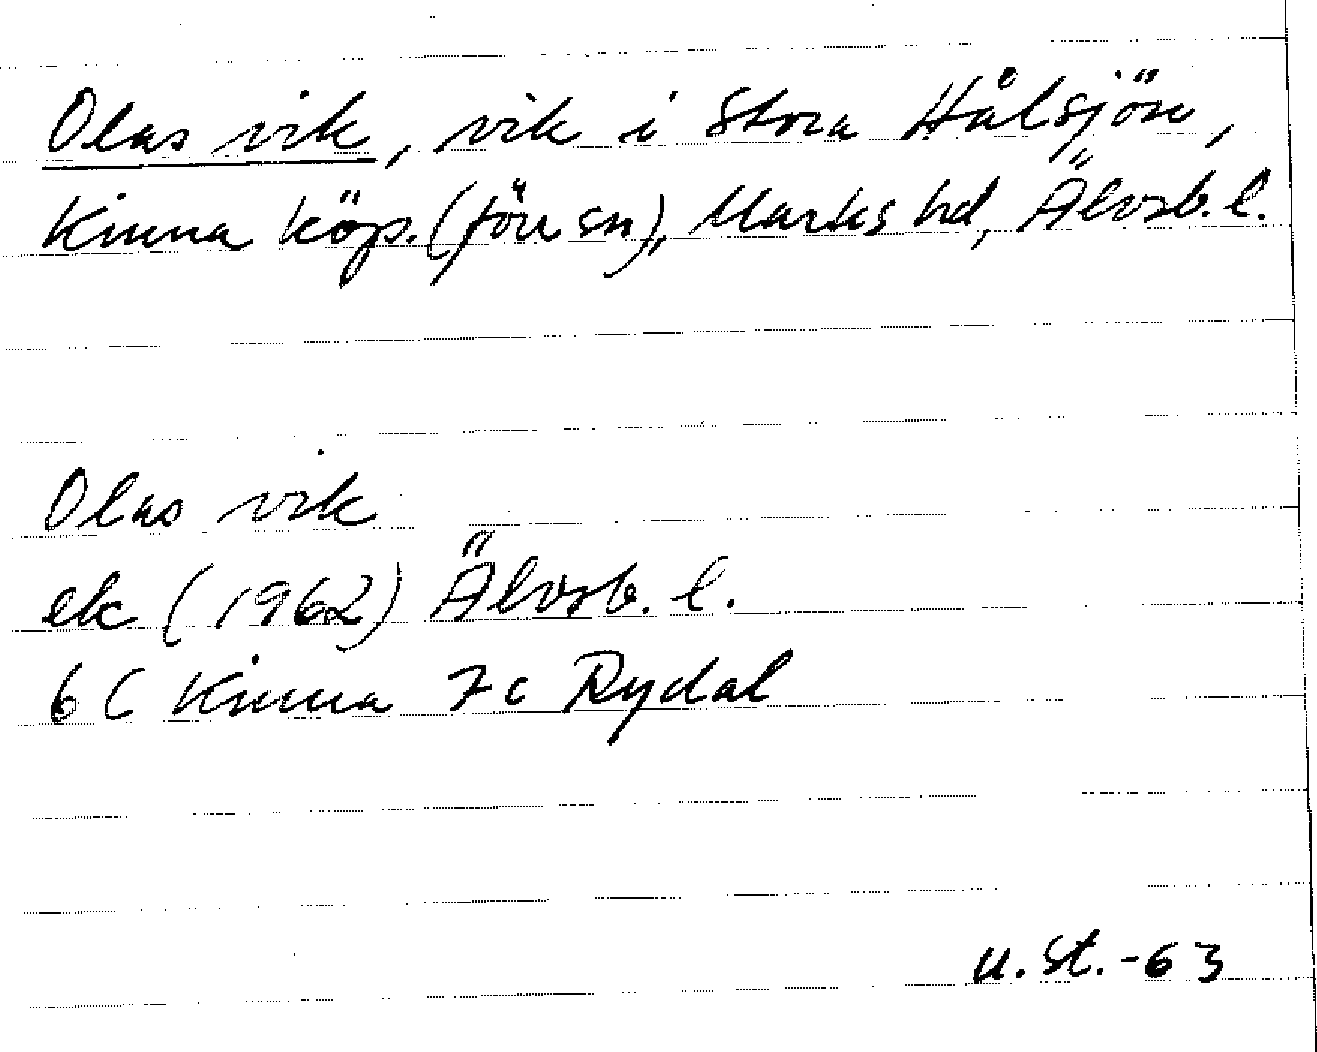 Olas vik, vik i Stora Hålsjön,
Kinna köp. (förr sn), Marks hd, Älvsb. l.
Olas vik
ek (1962) Älvsb. l.
6 C Kinna 7c Rydal
U. St. -63